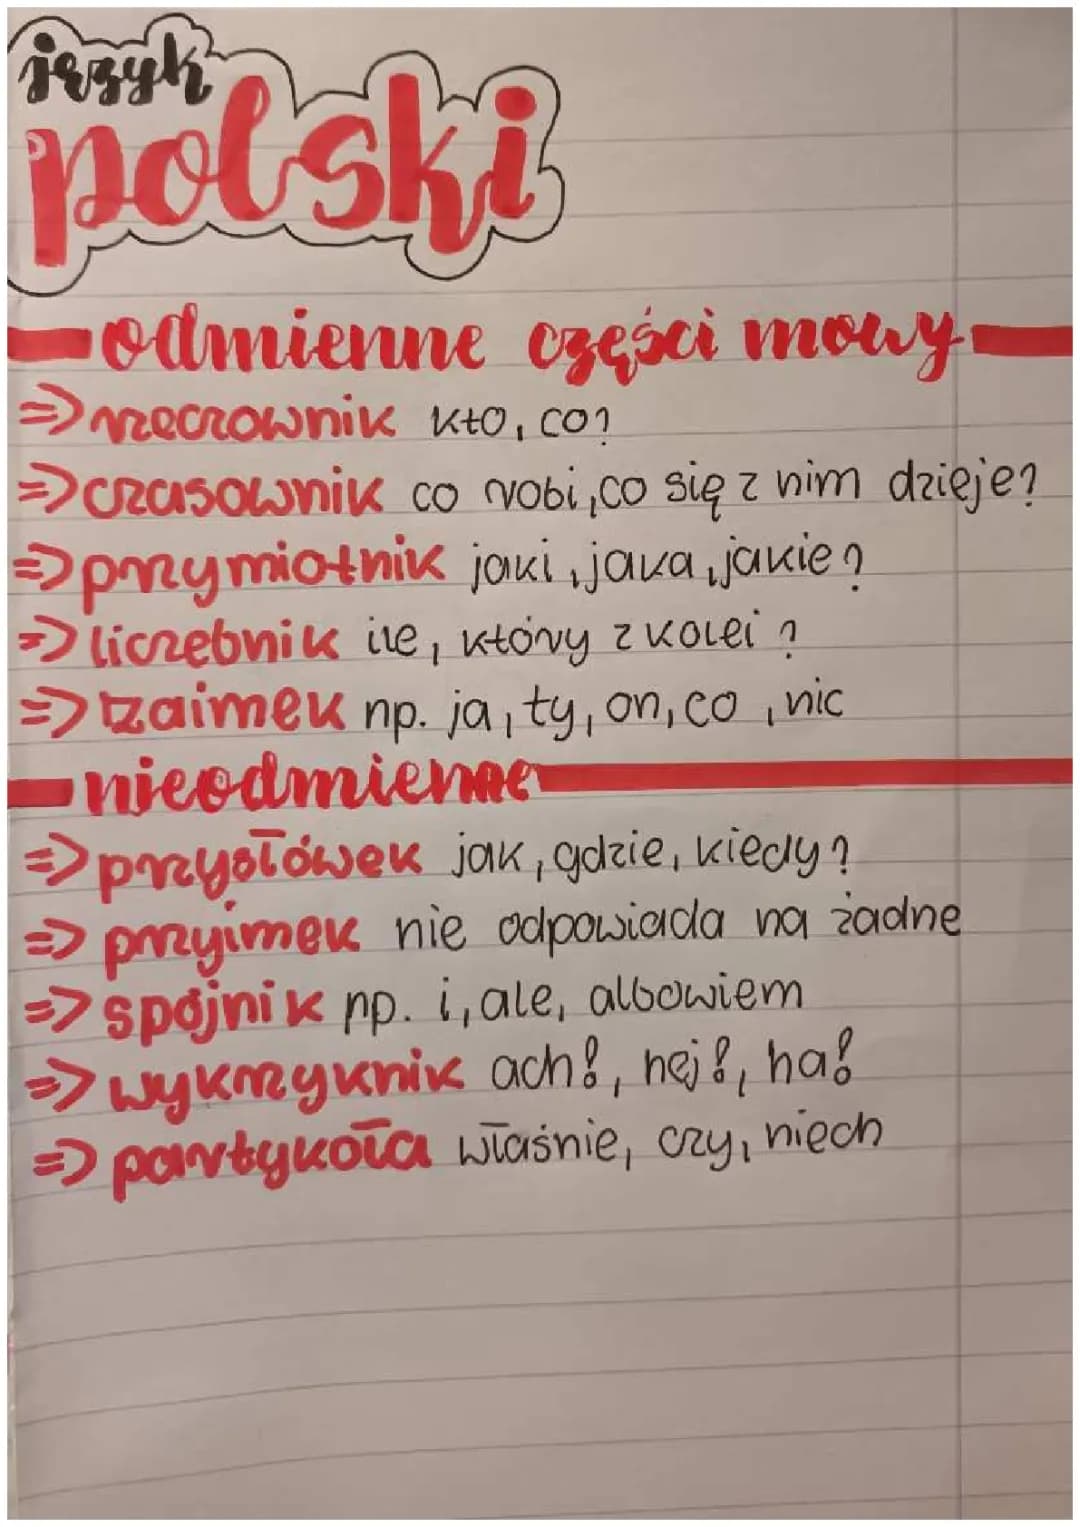 język
polski
odmienne części mowy
=> rzeczownik kto, co?
=> czasownik co robi, co się z nim dzieje?
=> przymiotnik jaki, jaka, jakie?
=> liczebnik ile, który z kolei?
=> zaimek np. ja, ty, on, co, nic
nieodmienne
=> przysłówek jak, gdzie, kiedy?
=> przyimek nie odpowiada na żadne
=> spójnik np. i, ale, albowiem
=> wykrzyknik ach!, hej!, ha!
=> partykóła właśnie, czy, niech